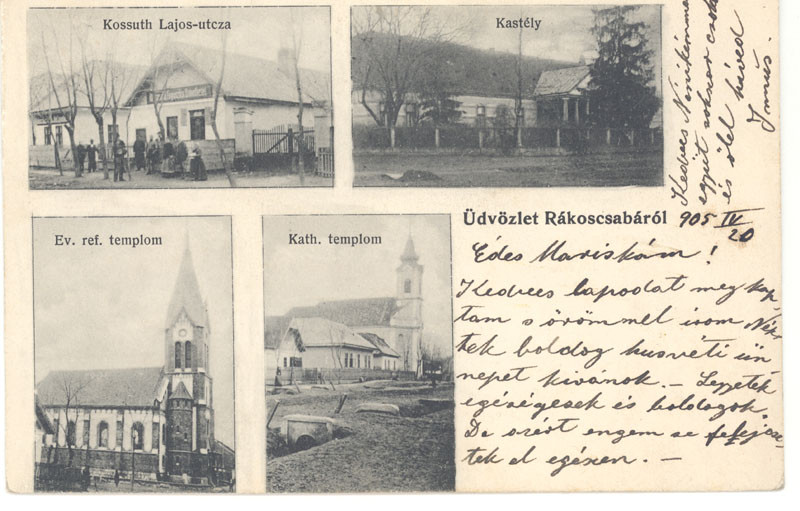 Kossuth Lajos-utcza
Kastély
Ev. ref. templom
Kath. templom
Üdvözlet Rákoscsabáról
905 IV
20
Édes Mariskám!
Kedves lapodat meg kap-
tam s örömmel irom Nék-
tek boldog husvéti ün
nepet kivánok. — Legyetek
egészégesek és boldogok.
De azért engem se felejse-
tek el egészen. —
Kedves
egyűt sokszor csókol
és ölel híved